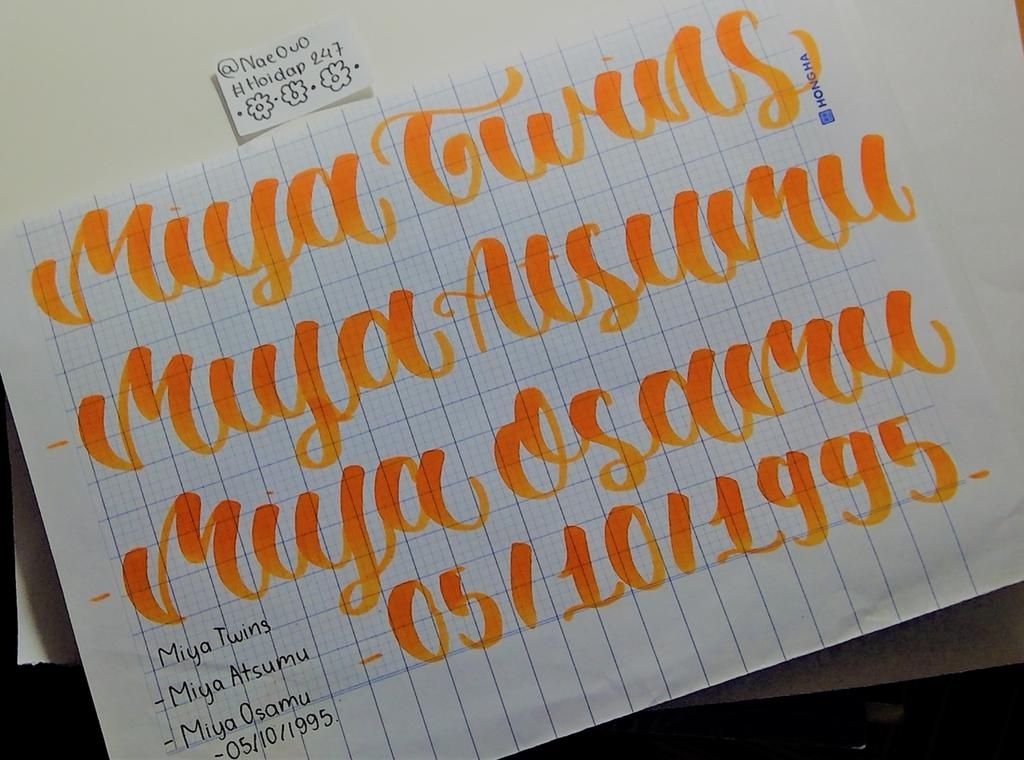 @NaeOuO
#Hoidap 247
Miya Twins
HONG HA
- Miya Atsumu
- Miya Osamu
- 05/10/1995 -
Miya Twins
- Miya Atsumu
- Miya Osamu
- 05/10/1995.